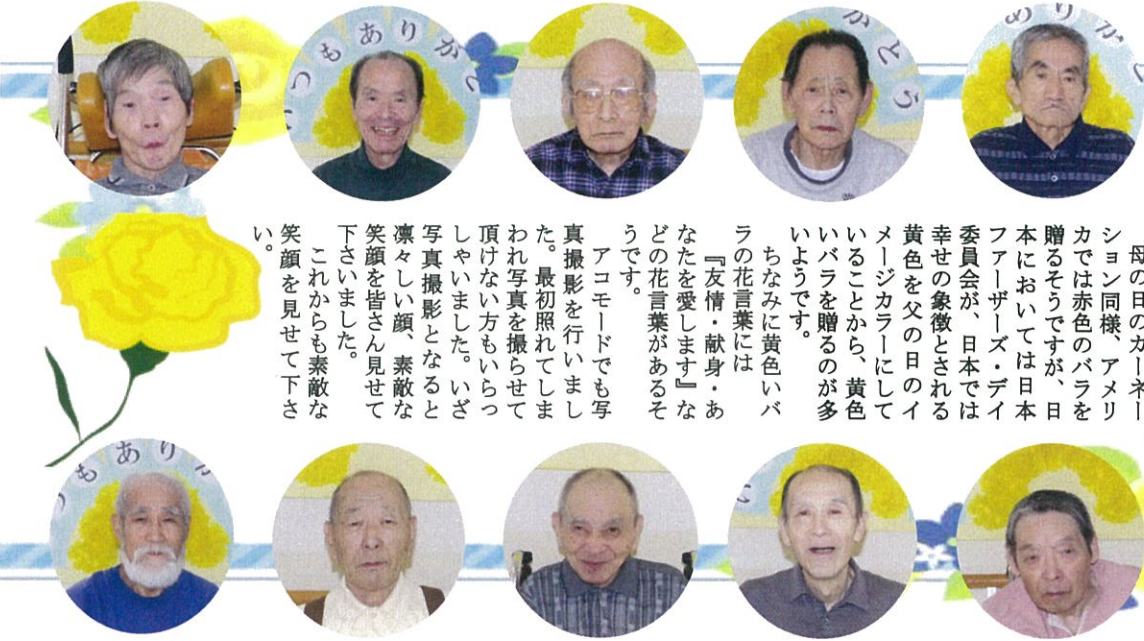 いつもありがと
がとう
ありがと
母の日のカーネー
ション同様、アメリ
カでは赤色のバラを
贈るそうですが、日
本においては日本
ファーザーズ・デイ
委員会が、日本では
幸せの象徴とされる
黄色を父の日のイ
メージカラーにして
いることから、黄色
いバラを贈るのが多
いようです。
ちなみに黄色いバ
ラの花言葉には
『友情・献身・あ
なたを愛します』な
どの花言葉があるそ
うです。
アコモードでも写
真撮影を行いまし
た。最初照れてしま
われ写真を撮らせて
頂けない方もいらっ
しゃいました。いざ
写真撮影となると
凛々しい顔、素敵な
笑顔を皆さん見せて
下さいました。
これからも素敵な
笑顔を見せて下さ
い。
つもありが
い